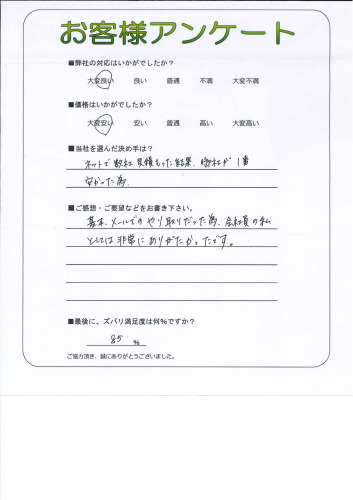 お客様アンケート
■弊社の対応はいかがでしたか？
大変良い 良い 普通 不満 大変不満
■価格はいかがでしたか？
大変安い 安い 普通 高い 大変高い
■当社を選んだ決め手は？
ネットで数社見積もった結果、御社が1番
安かった為。
■ご感想・ご要望などをお書き下さい。
基本、メールでのやり取りだった為、会社員の私
としては非常にありがたかったです。
■最後に、ズバリ満足度は何％ですか？
85 %
ご協力頂き、誠にありがとうございました。